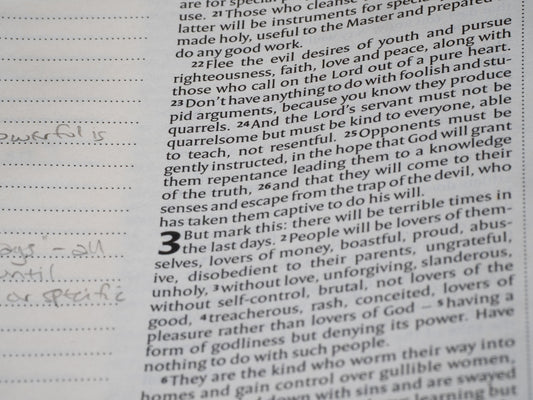 are for special
use. 21 Those who cleanse
latter will be instruments for special
made holy, useful to the Master and prepared
do any good work.
22 Flee the evil desires of youth and pursue
righteousness, faith, love and peace, along with
those who call on the Lord out of a pure heart.
23 Don't have anything to do with foolish and stu-
pid arguments, because you know they produce
quarrels. 24 And the Lord's servant must not be
quarrelsome but must be kind to everyone, able
to teach, not resentful. 25 Opponents must be
gently instructed, in the hope that God will grant
them repentance leading them to a knowledge
of the truth, 26 and that they will come to their
senses and escape from the trap of the devil, who
has taken them captive to do his will.
3 But mark this: there will be terrible times in
the last days. 2 People will be lovers of them-
selves, lovers of money, boastful, proud, abus-
ive, disobedient to their parents, ungrateful,
unholy, 3 without love, unforgiving, slanderous,
without self-control, brutal, not lovers of the
good, 4 treacherous, rash, conceited, lovers of
pleasure rather than lovers of God – 5 having a
form of godliness but denying its power. Have
nothing to do with such people.
6 They are the kind who worm their way into
homes and gain control over gullible women,
down with sins and are swayed
learning but
owerful is
ays" - all
until
or specific